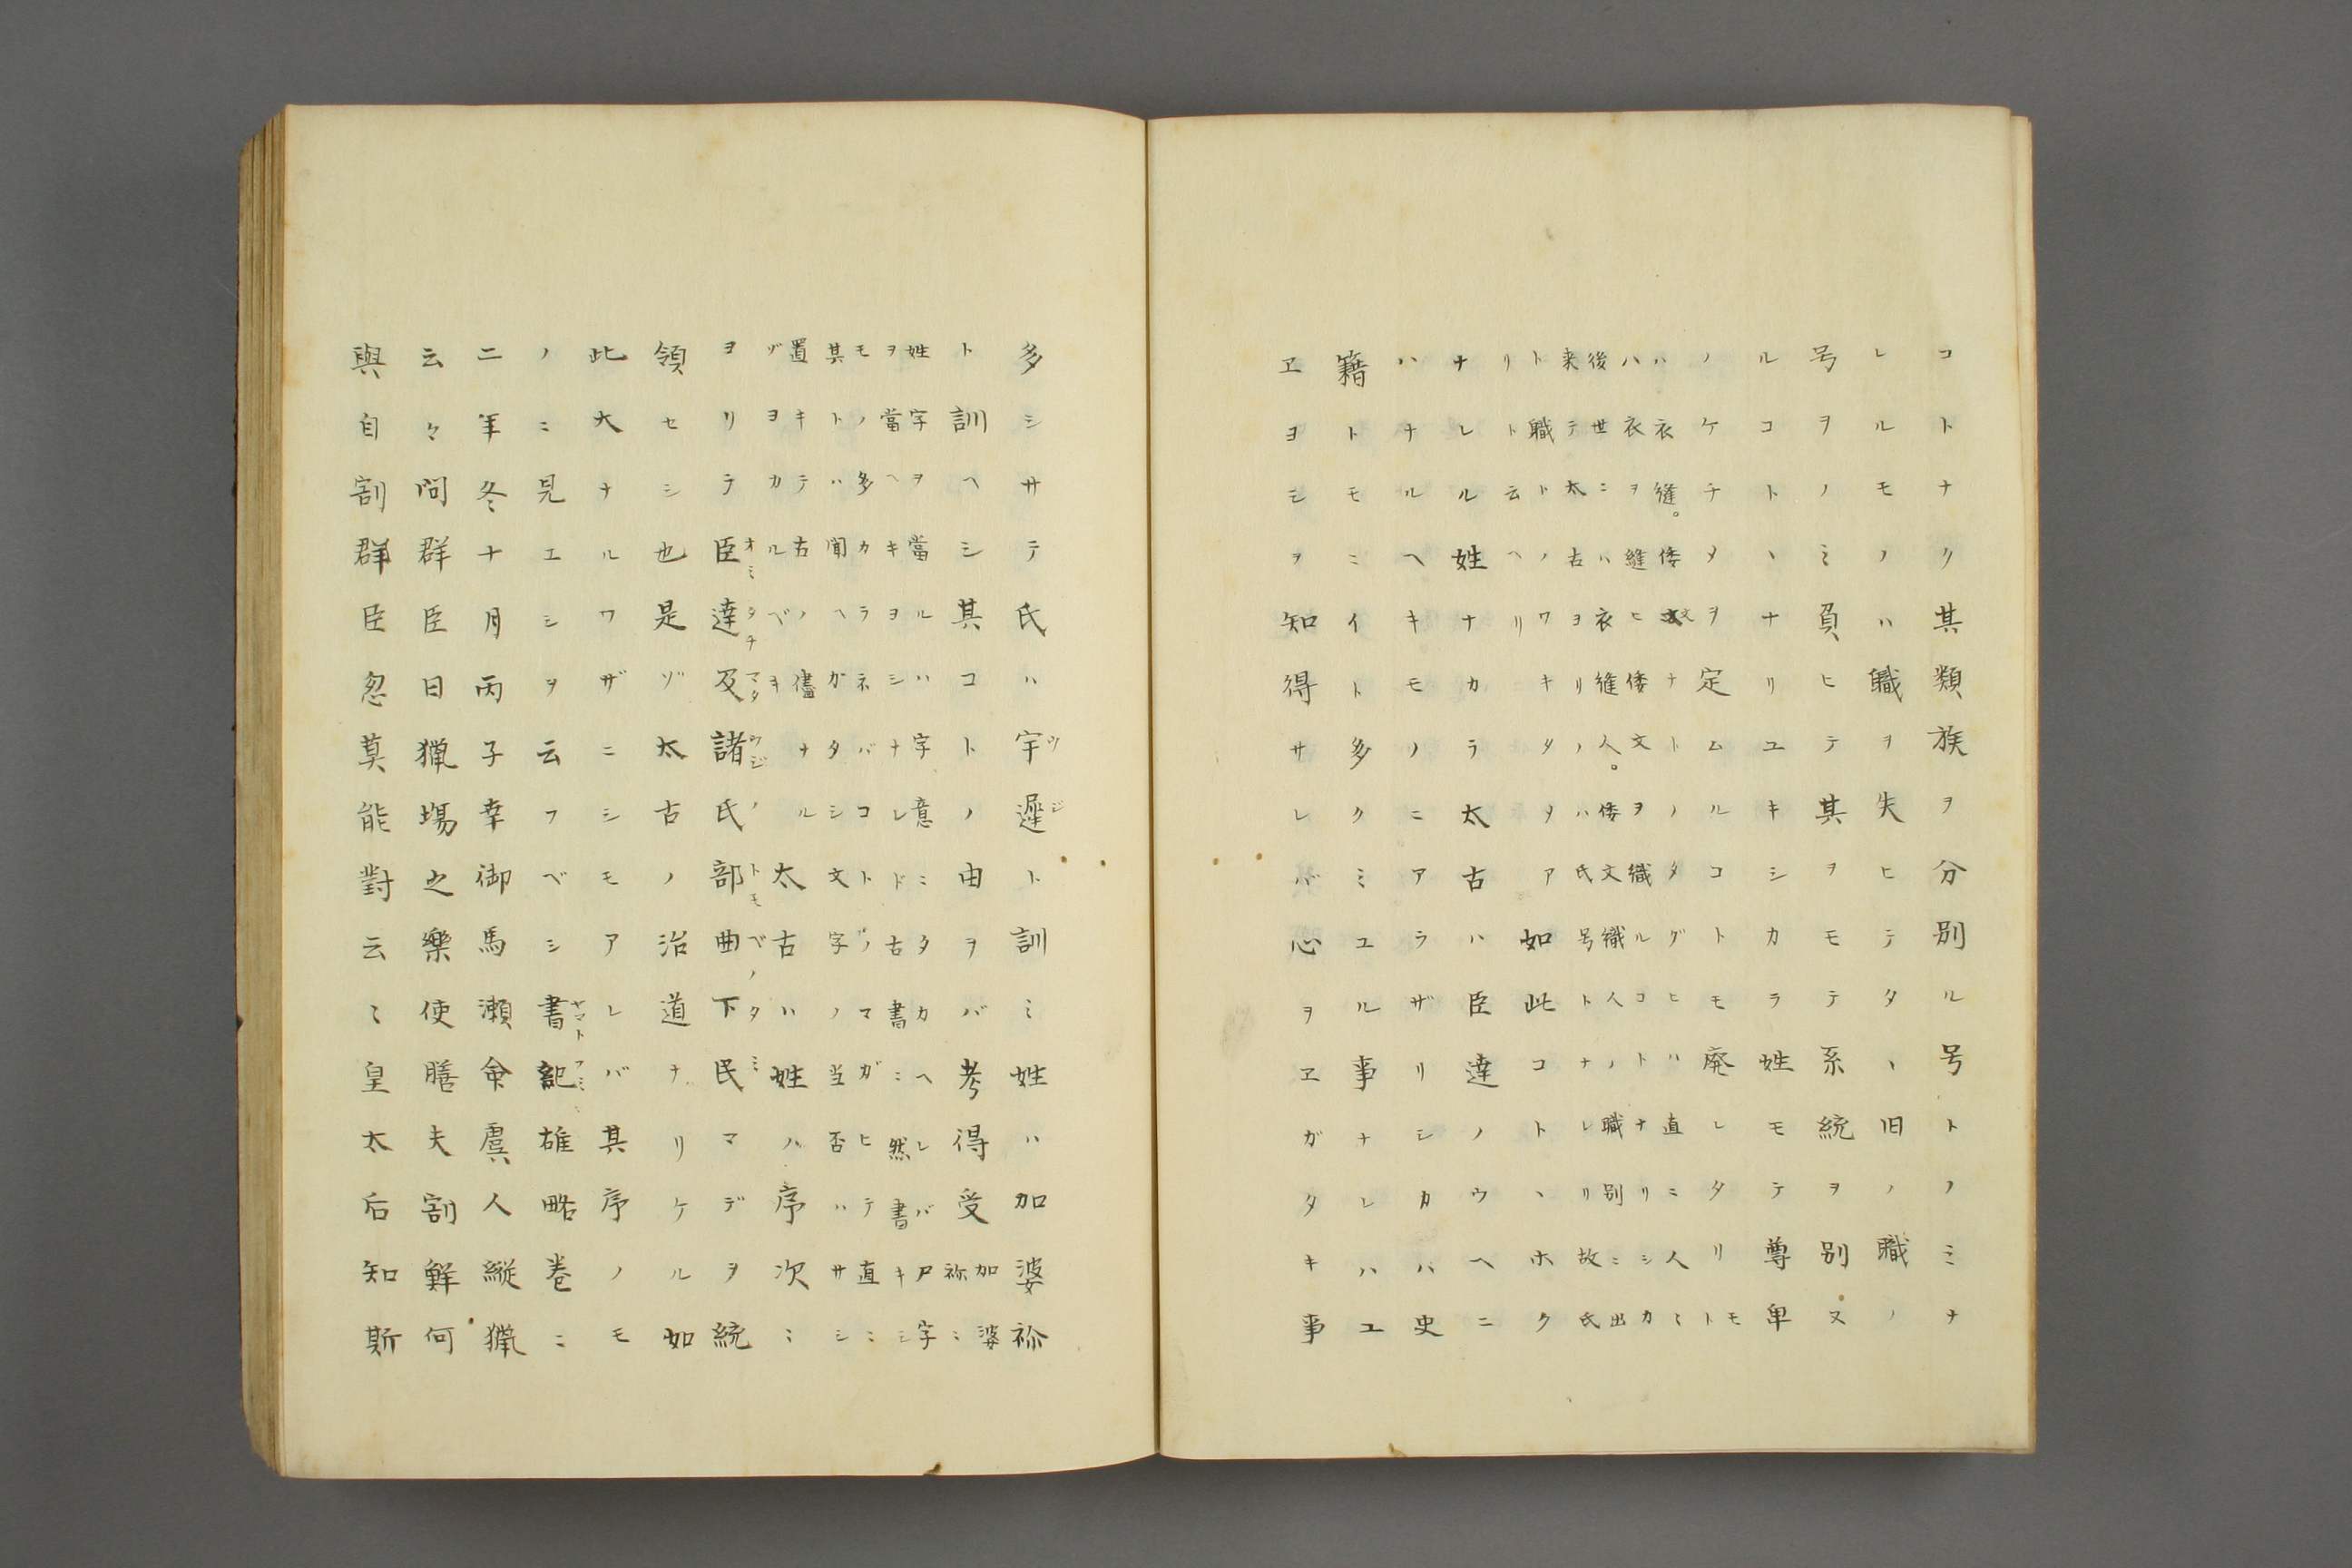 コトナク其類族ヲ分別ル号トノミナ
レルモノハ職ヲ失ヒテタヽ旧ノ職ノ
号ヲノミ負ヒテ其ヲモテ系統ヲ別又
ルコトヽナリユキシカラ姓モテ尊卑
ノケチメヲ定ムルコトモ廃レタリモト
ハ衣縫。倭文ナトノタグヒハ直ニ人ミ
ハ衣ヲ縫ヒ倭文ヲ織ルコトナリシカ
後世ニハ衣縫人。倭文織人ノ職別ニ出
来テ太古ヲリノハ氏号トナレリ故氏
ト職トノワキタメア
リト云ヘリ
如此コトヽホク
ナレル姓ナカラ太古ハ臣達ノウヘニ
ハナルヘキモノニアラザリシカハ史
籍トモニイト多クミユル事ナレハユ
ヱヨシヲ知得サレバ心ヲヱガタキ事
多シサテ氏ハ宇遅ト訓ミ姓ハ加婆祢
ト訓ヘシ其コトノ由ヲバ考得受加婆
祢ミ
姓字ヲ當ルハ字意ニタカヘレバ尸字
ヲ當ヘキヲシナレド古書ニ然書キシ
モノ多カラネバコトノマガヒテ直ミ
其トハ聞ヘガタシ文字ノ当否ハサシ
置キテ古ノ儘
ゾヲカルベキナル
太古ハ姓ハ序次ミ
ヲリテ臣達及諸氏ノ部曲下民マデヲ統
領セシ也是ゾ太古ノ治道ナリケル如
此大ナルワザニシモアレバ其序ノモ
ノニ見エシヲ云フベシ書記雄略巻ニ
二年冬十月丙子幸御馬瀬命虞人縦猟
云々問群臣曰猟場之樂使膳夫割鮮何
與自割群臣忽莫能對云〻皇太后知斯